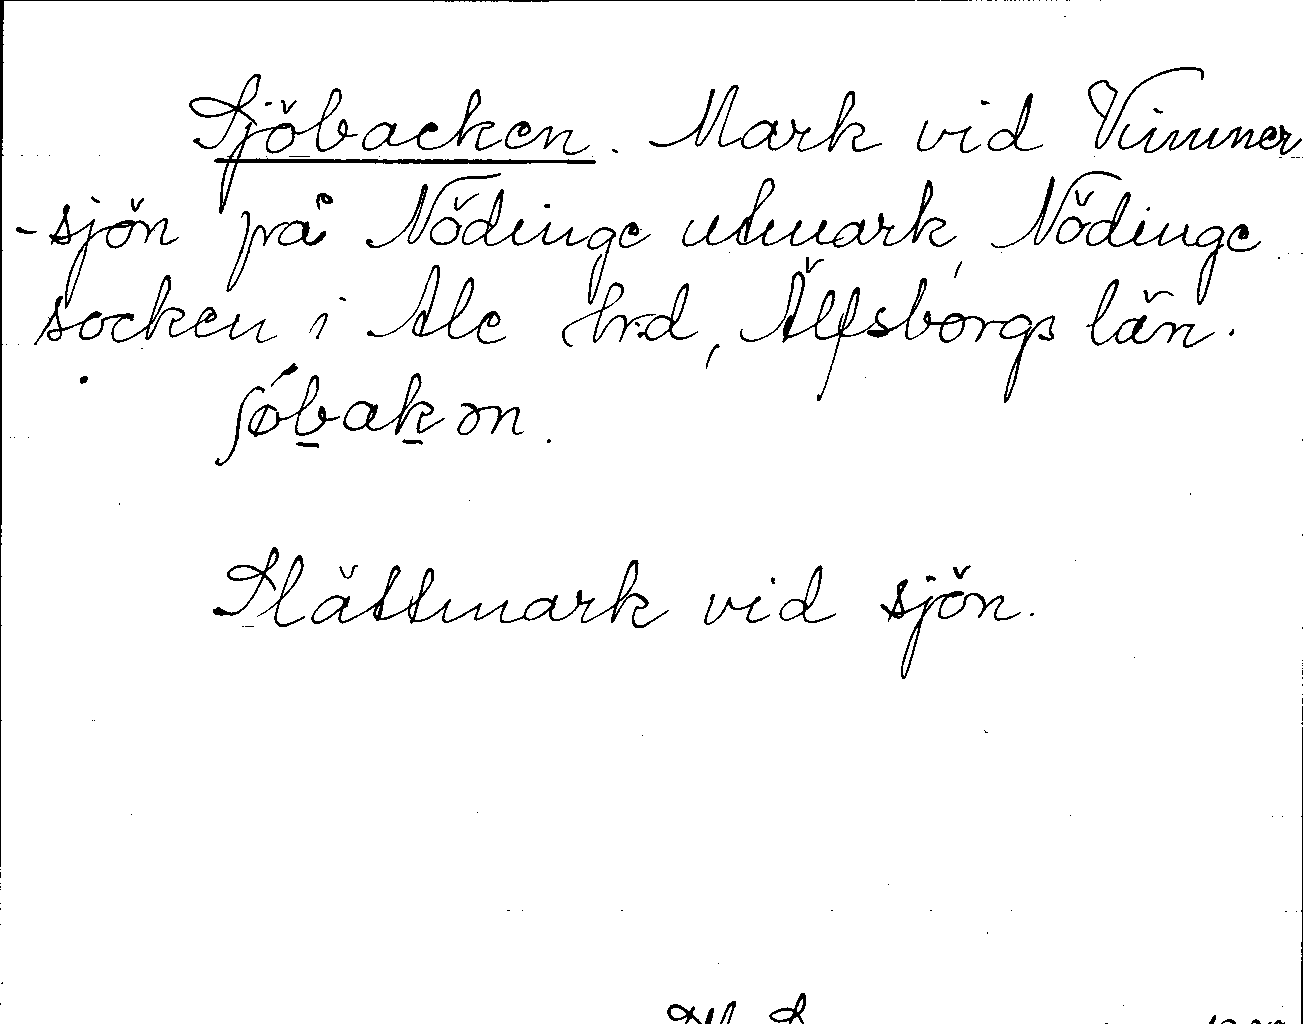 Sjöbacken. Mark vid Vimmer
-sjön på Nödinge utmark, Nödinge
socken i Ale hrd, Älfsborgs län.
ʃǿbakən.
Slättmark vid sjön.